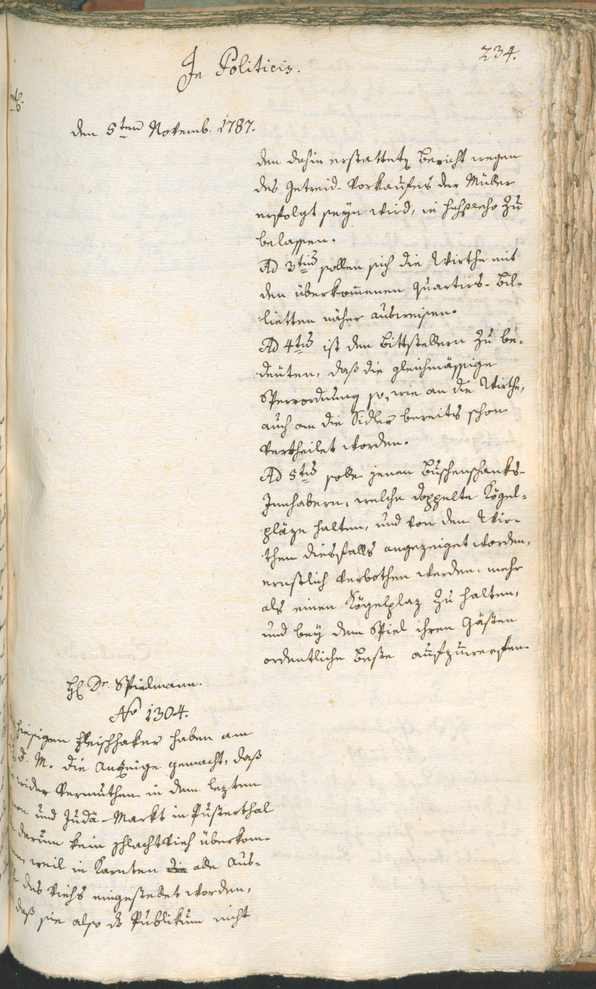 234.
In Politicis.
den 5ten Novemb. 1787.
den dahin erstatteten Bericht wegen
des Getreid-Vorkaufens der Müller
erfolgt seyn wird, in zu
belassen.
Ad 3tius sollen sich die Wirthe mit
den überkommenen Quartiers-Bil-
lietten näher ausweisen.
Ad 4tus ist den Bittstellern zu be-
deuten, daß die gleichmässige
Sperrordnung so, wie an die Wirthe,
auch an die Sidler bereits schon
vertheilet worden.
Ad 5tus solle jenen Buschenschanks-
Innhabern, welche doppelte Kögel-
pläze halten, und von den Wir-
then diesfalls angezeiget worden,
ernstlich verbothen werden, mehr
als einen Kögelplaz zu halten,
und bey dem Spiel ihren Gästen
ordentliche Beste aufzuwerfen.
H. Dr. Spielmann.
No 1304.
hiesigen Fleischhaker haben am
d. M. die Anzeige gemacht, daß
wider Vermuthen in dem lezten
und Judä-Markt in Pusterthal
darum kein Schlachtvieh überkom-
weil in Kärnten alle Aus-
des Viehs eingestellet worden,
daß sie also das Publikum nicht